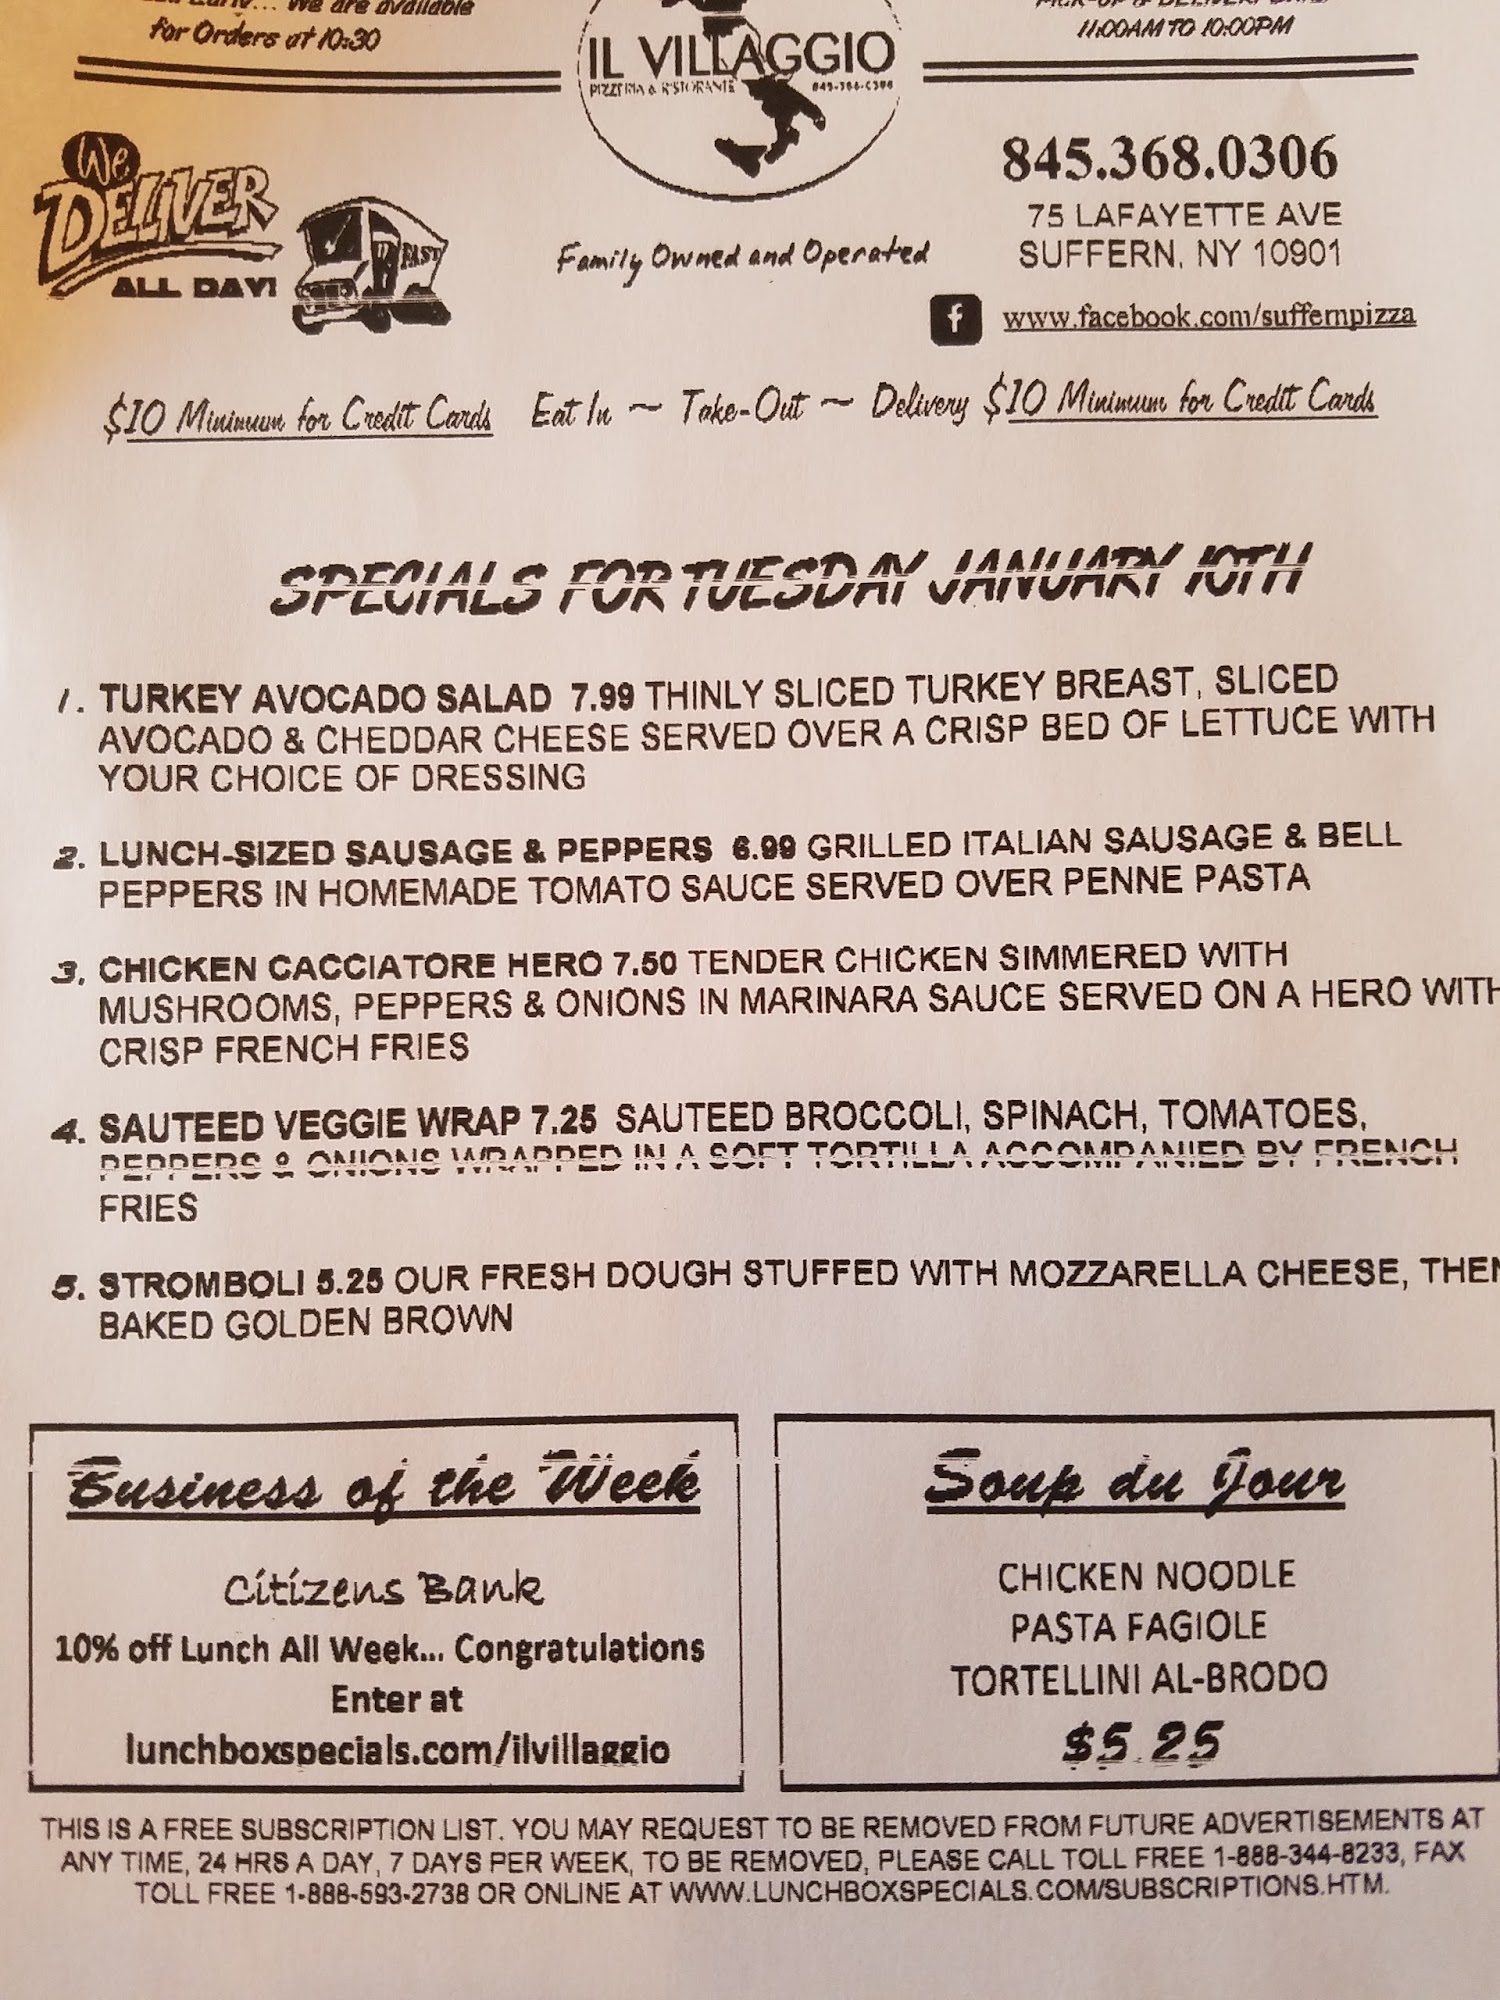 We are available
for Orders at 10:30
11:00AM TO 10:00PM
IL VILLAGGIO
PIZZERIA & RISTORANTE
We
DELIVER
ALL DAY!
FAST
Family Owned and Operated
845.368.0306
75 LAFAYETTE AVE
SUFFERN, NY 10901
f www.facebook.com/suffernpizza
$10 Minimum for Credit Cards Eat In ~ Take-Out ~ Delivery $10 Minimum for Credit Cards
SPECIALS FOR TUESDAY JANUARY 10TH
1. TURKEY AVOCADO SALAD 7.99 THINLY SLICED TURKEY BREAST, SLICED
AVOCADO & CHEDDAR CHEESE SERVED OVER A CRISP BED OF LETTUCE WITH
YOUR CHOICE OF DRESSING
2. LUNCH-SIZED SAUSAGE & PEPPERS 6.99 GRILLED ITALIAN SAUSAGE & BELL
PEPPERS IN HOMEMADE TOMATO SAUCE SERVED OVER PENNE PASTA
3. CHICKEN CACCIATORE HERO 7.50 TENDER CHICKEN SIMMERED WITH
MUSHROOMS, PEPPERS & ONIONS IN MARINARA SAUCE SERVED ON A HERO WITH
CRISP FRENCH FRIES
4. SAUTEED VEGGIE WRAP 7.25 SAUTEED BROCCOLI, SPINACH, TOMATOES,
PEPPERS & ONIONS WRAPPED IN A SOFT TORTILLA ACCOMPANIED BY FRENCH
FRIES
5. STROMBOLI 5.25 OUR FRESH DOUGH STUFFED WITH MOZZARELLA CHEESE, THEN
BAKED GOLDEN BROWN
Business of the Week
Citizens Bank
10% off Lunch All Week... Congratulations
Enter at
lunchboxspecials.com/ilvillaggio
Soup du Jour
CHICKEN NOODLE
PASTA FAGIOLE
TORTELLINI AL-BRODO
$5.25
THIS IS A FREE SUBSCRIPTION LIST. YOU MAY REQUEST TO BE REMOVED FROM FUTURE ADVERTISEMENTS AT
ANY TIME, 24 HRS A DAY, 7 DAYS PER WEEK, TO BE REMOVED, PLEASE CALL TOLL FREE 1-888-344-8233, FAX
TOLL FREE 1-888-593-2738 OR ONLINE AT WWW.LUNCHBOXSPECIALS.COM/SUBSCRIPTIONS.HTM.